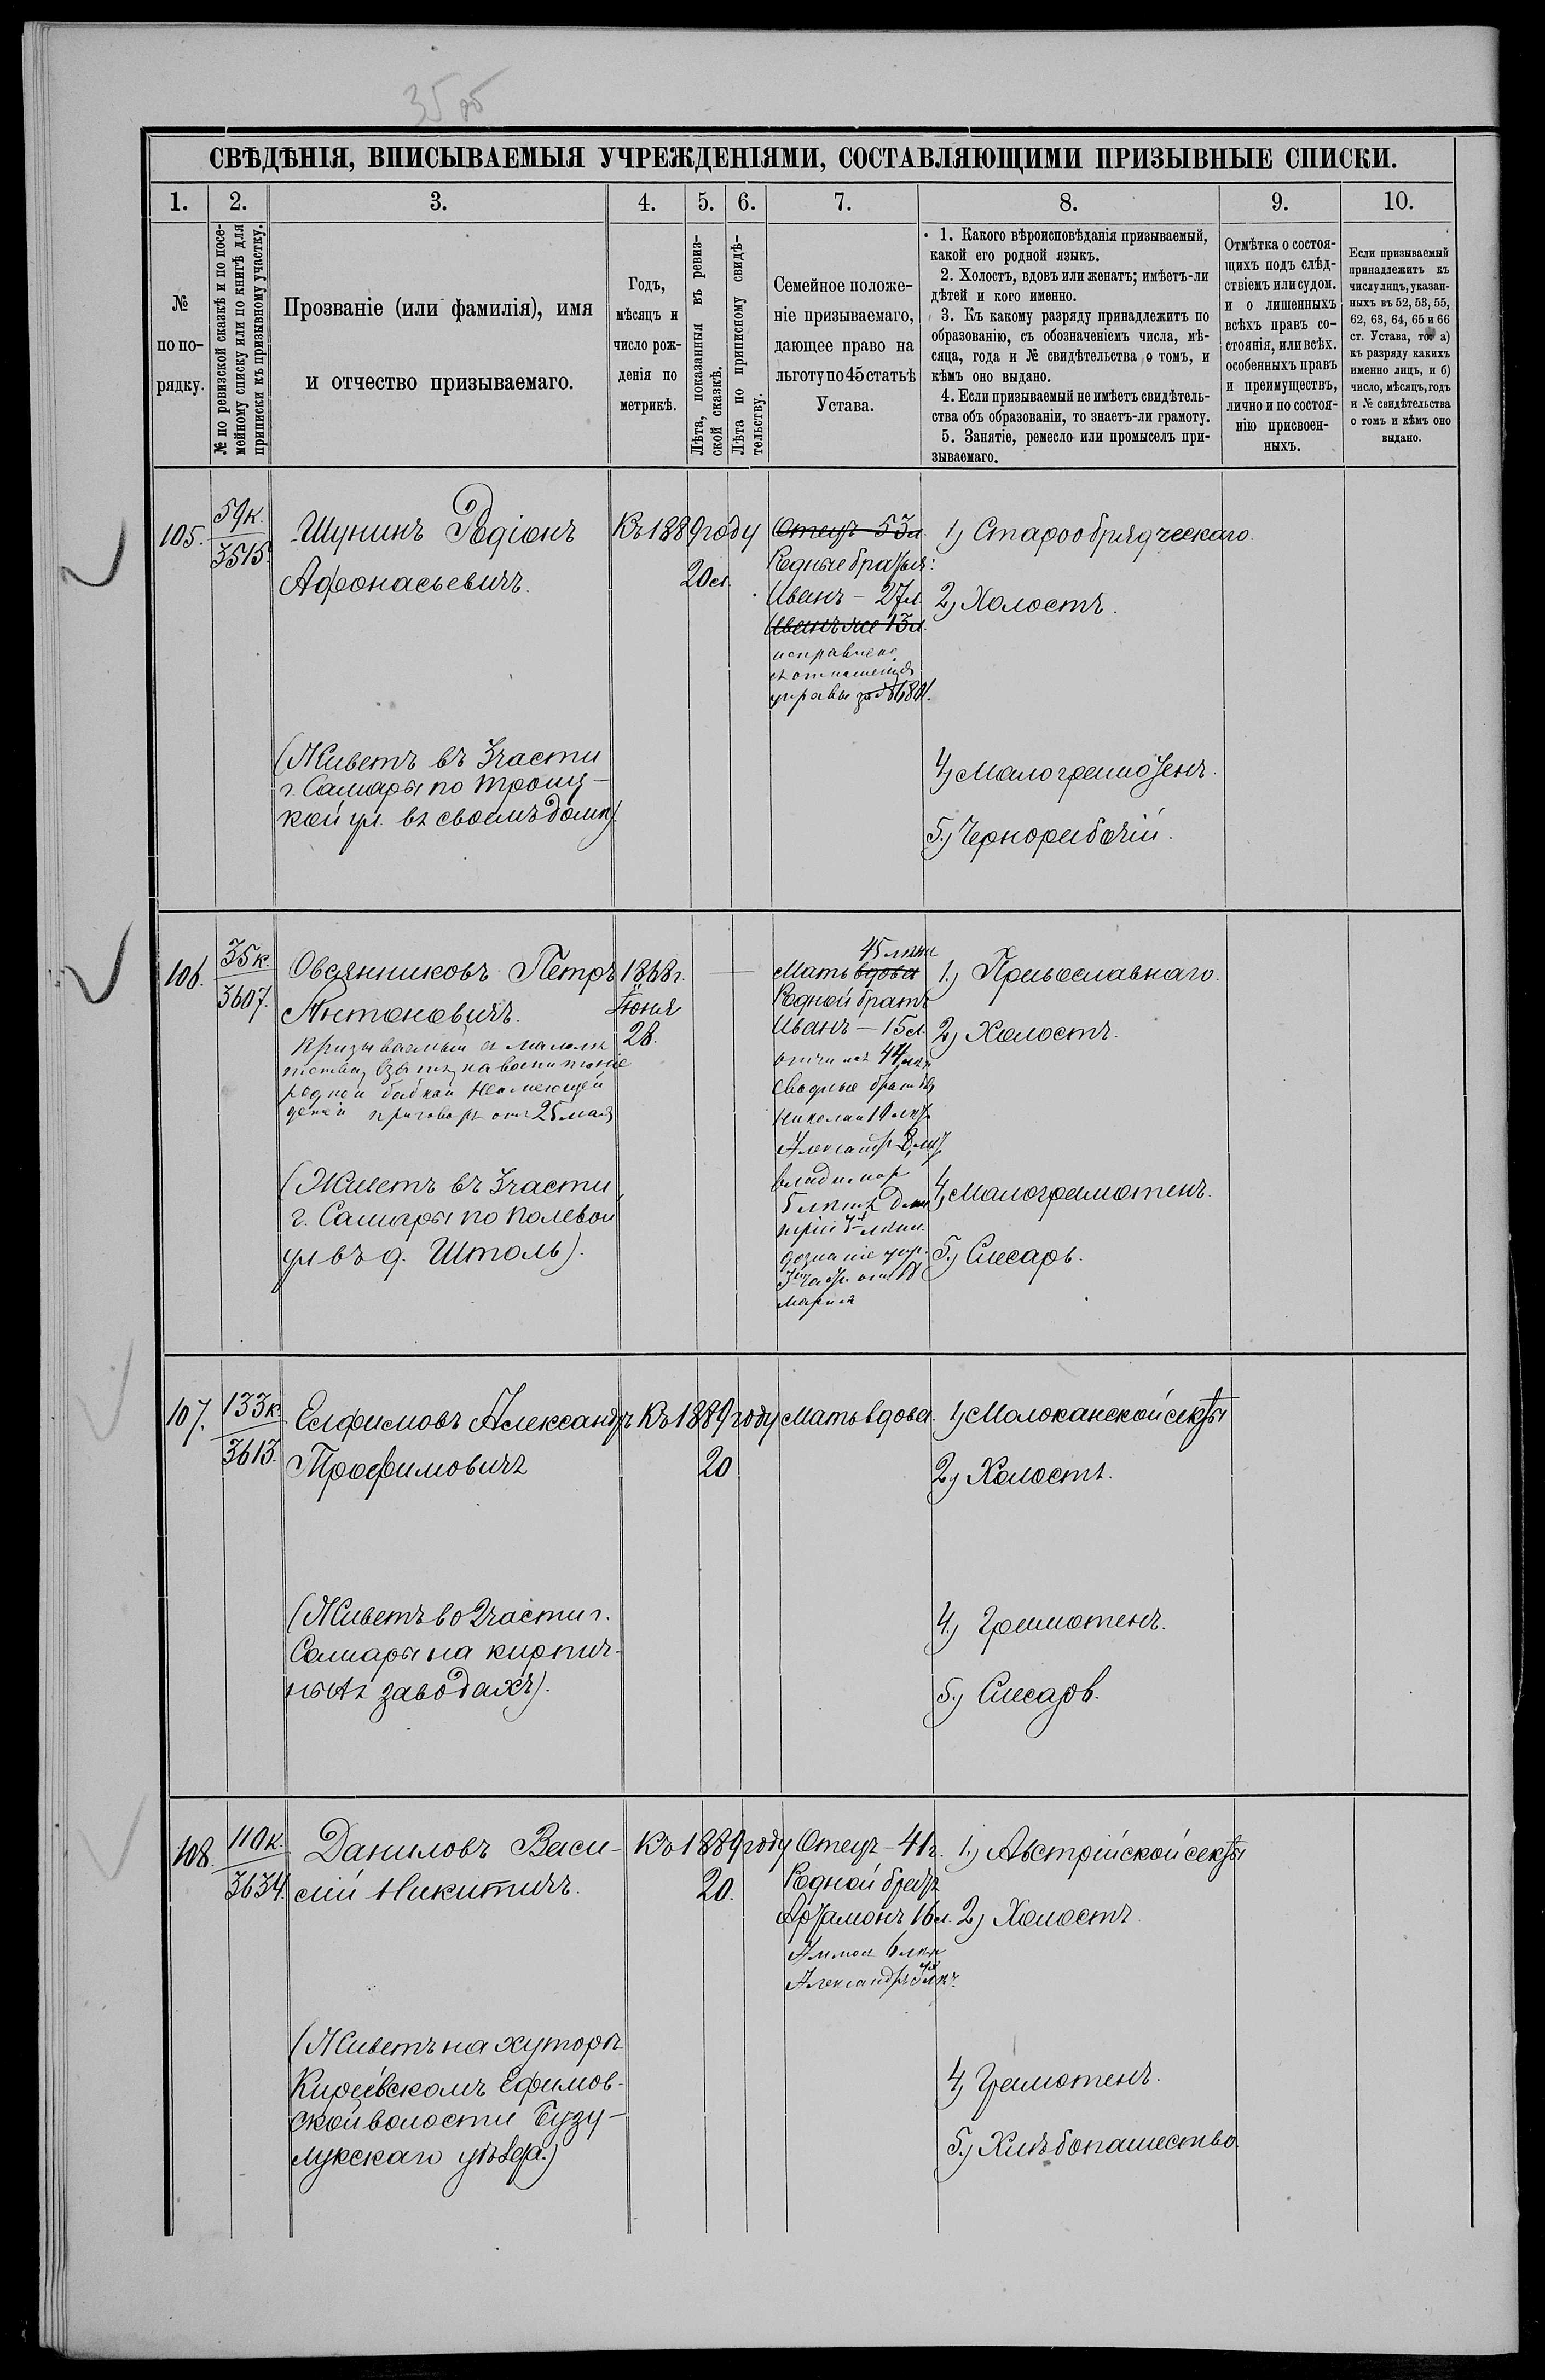 35 об
СВѢДѢНІЯ, ВПИСЫВАЕМЫЯ УЧРЕЖДЕНІЯМИ, СОСТАВЛЯЮЩИМИ ПРИЗЫВНЫЕ СПИСКИ.
1. 2. 3. 4. 5. 6. 7. 8. 9. 10.
№
по по-
рядку.
№ по ревизской сказкѣ и по посе-
мейному списку или по книгѣ для
приписки къ призывному участку.
Прозваніе (или фамилія), имя
и отчество призываемаго.
Годъ,
мѣсяцъ и
число рож-
денія по
метрикѣ.
Лѣта, показанныя въ ревиз-
ской сказкѣ.
Лѣта по приписному свидѣ-
тельству.
Семейное положе-
ніе призываемаго,
дающее право на
льготу по 45 статьѣ
Устава.
1. Какого вѣроисповѣданія призываемый,
какой его родной языкъ.
2. Холостъ, вдовъ или женатъ; имѣетъ-ли
дѣтей и кого именно.
3. Къ какому разряду принадлежитъ по
образованію, съ обозначеніемъ числа, мѣ-
сяца, года и № свидѣтельства о томъ, и
кѣмъ оно выдано.
4. Если призываемый не имѣетъ свидѣтель-
ства объ образованіи, то знаетъ-ли грамоту.
5. Занятіе, ремесло или промыселъ при-
зываемаго.
Отмѣтка о состоя-
щихъ подъ слѣд-
ствіемъ или судом.
и о лишенныхъ
всѣхъ правъ со-
стоянія, или всѣх.
особенныхъ правъ
и преимуществъ,
лично и по состоя-
нію присвоен-
ныхъ.
Если призываемый
принадлежитъ къ
числу лицъ, указан-
ныхъ въ 52, 53, 55,
62, 63, 64, 65 и 66
ст. Устава, то: а)
къ разряду какихъ
именно лицъ, и б)
число, мѣсяцъ, годъ
и № свидѣтельства
о томъ и кѣмъ оно
выдано.
105.
59к.
3515.
Шунинъ Родіонъ
Афонасьевичъ.
(Живетъ въ 3 части
г. Самары по Троиц-
кой ул. въ своемъ домѣ).
Къ 1889 году
20 л.
Отецъ 53 л.
Родные братья:
Иванъ – 27 л.
Иванъ же 13 л.
исправлено
управы за № 6801.
1) Старообрядческаго.
2) Холостъ.
4) Малограмотенъ.
5.) Чернорабочій.
106.
35к.
3607.
Овсянниковъ Петръ
Антоновичъ.
Призываемый съ малолѣ
родной бабкой неимеющей
детей приговоръ отъ 25 мая
(Живетъ въ 3 части
г. Самары по Полевой
ул въ д. Штоль).
1868 г.
Іюня
28.
45 лѣтъ
Мать вдова
Родной братъ
Иванъ – 15 л.
отчимъ 44 лѣт
сводные братья
Николай 10 лѣт
Александръ 8 лѣт
Владиміръ
5 лѣтъ Дми
трій
дознаніе
марта
1.) Православнаго.
2) Холостъ.
4) Малограмотенъ.
5.) Слесарь.
107.
133к.
3613.
Елфимовъ Александръ
Трофимовичъ
(Живетъ во 2 части г.
Самары на кирпич-
ныхъ заводахъ).
Къ 1889 году
20
Мать вдова.
1) Молоканской секты
2) Холостъ.
4.) Грамотенъ.
5.) Слесарь.
108.
110к.
3634.
Даниловъ Васи-
лій Никитичъ.
(Живетъ на хуторѣ
Кирѣевскомъ Ефимов-
ской волости Бузу-
лукскаго уѣзда.)
Къ 1889 году
20.
Отецъ – 41 г.
Родной братъ
Артамонъ 16 л.
6 лѣт
Александръ
1.) Австрійской секты
2) Холостъ.
4) Грамотенъ.
5.) Хлѣбопашество.